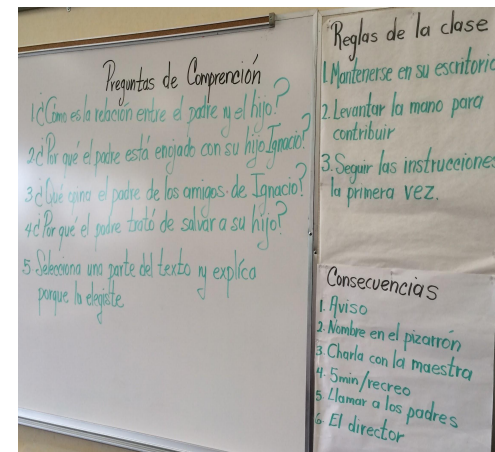 Preguntas de Comprención
1 ¿Cómo es la relación entre el padre y el hijo?
2 ¿Por qué el padre está enojado con su hijo Ignacio?
3 ¿Qué opina el padre de los amigos de Ignacio?
4 ¿Por qué el padre trató de salvar a su hijo?
5 Selecciona una parte del texto y explíca
porque la elegiste
Reglas de la clase
1. Mantenerse en su escritorio
2. Levantar la mano para
contribuir
3. Seguir las instrucciones
la primera vez.
Consecuencias
1. Aviso
2. Nombre en el pizarrón
3. Charla con la maestra
4. 5min/recreo
5. Llamar a los padres
6. El director